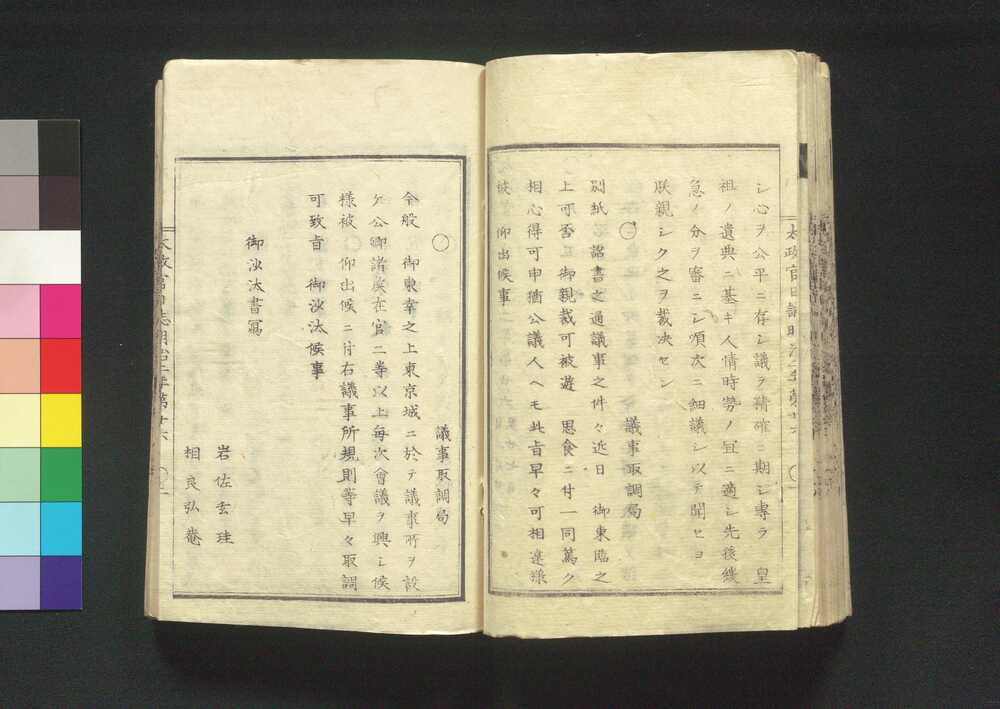 シ心ヲ公平ニ存シ議ヲ精確ニ期シ專ラ　皇
祖ノ遺典ニ基キ人情時勢ノ宜ニ適シ先後緩
急ノ分ヲ審ニシ順次ニ細議シ以テ聞セヨ
朕親シク之ヲ裁决セン
○　議事取調局
別紙　詔書之通議事之件々近日　御東臨之
上可否　御親裁可被遊　思食ニ付一同篤ク
相心得可申猶公議人ヘモ此旨早々可相達樣
被　仰出候事
太政官日誌明治二年第十六
○　議事取調局
今般　御東幸之上東京城ニ於テ議事所ヲ設
ケ公卿諸矦在官二等以上每次會議ヲ興シ候
樣被　仰出候ニ付右議事所規則等早々取調
可致旨　御沙汰候事
御沙汰書寫
岩佐玄珪
相良弘菴
太政官日誌明治二年第十六